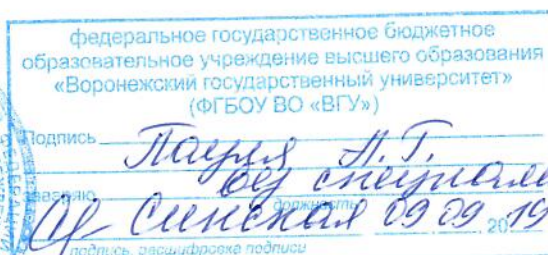 федеральное государственное бюджетное
образовательное учреждение высшего образования
«Воронежский государственный университет»
(ФГБОУ ВО «ВГУ»)
Подпись Пауля А.Г.
заверяю
должность
09 09 2019
подпись, расшифровка подписи